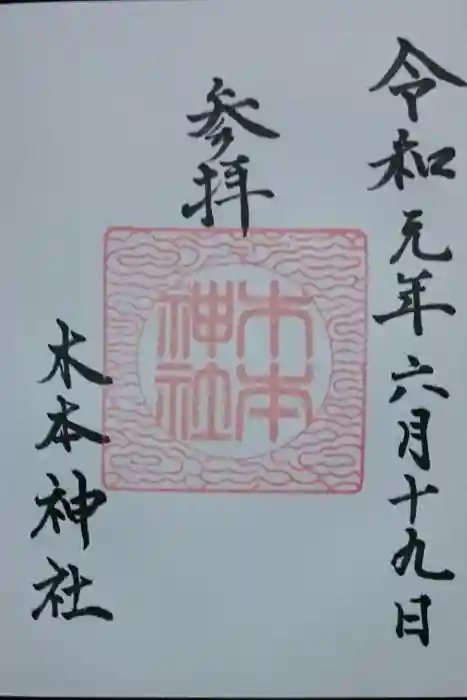 令和元年六月十九日
参拝
木本神社
木本神社